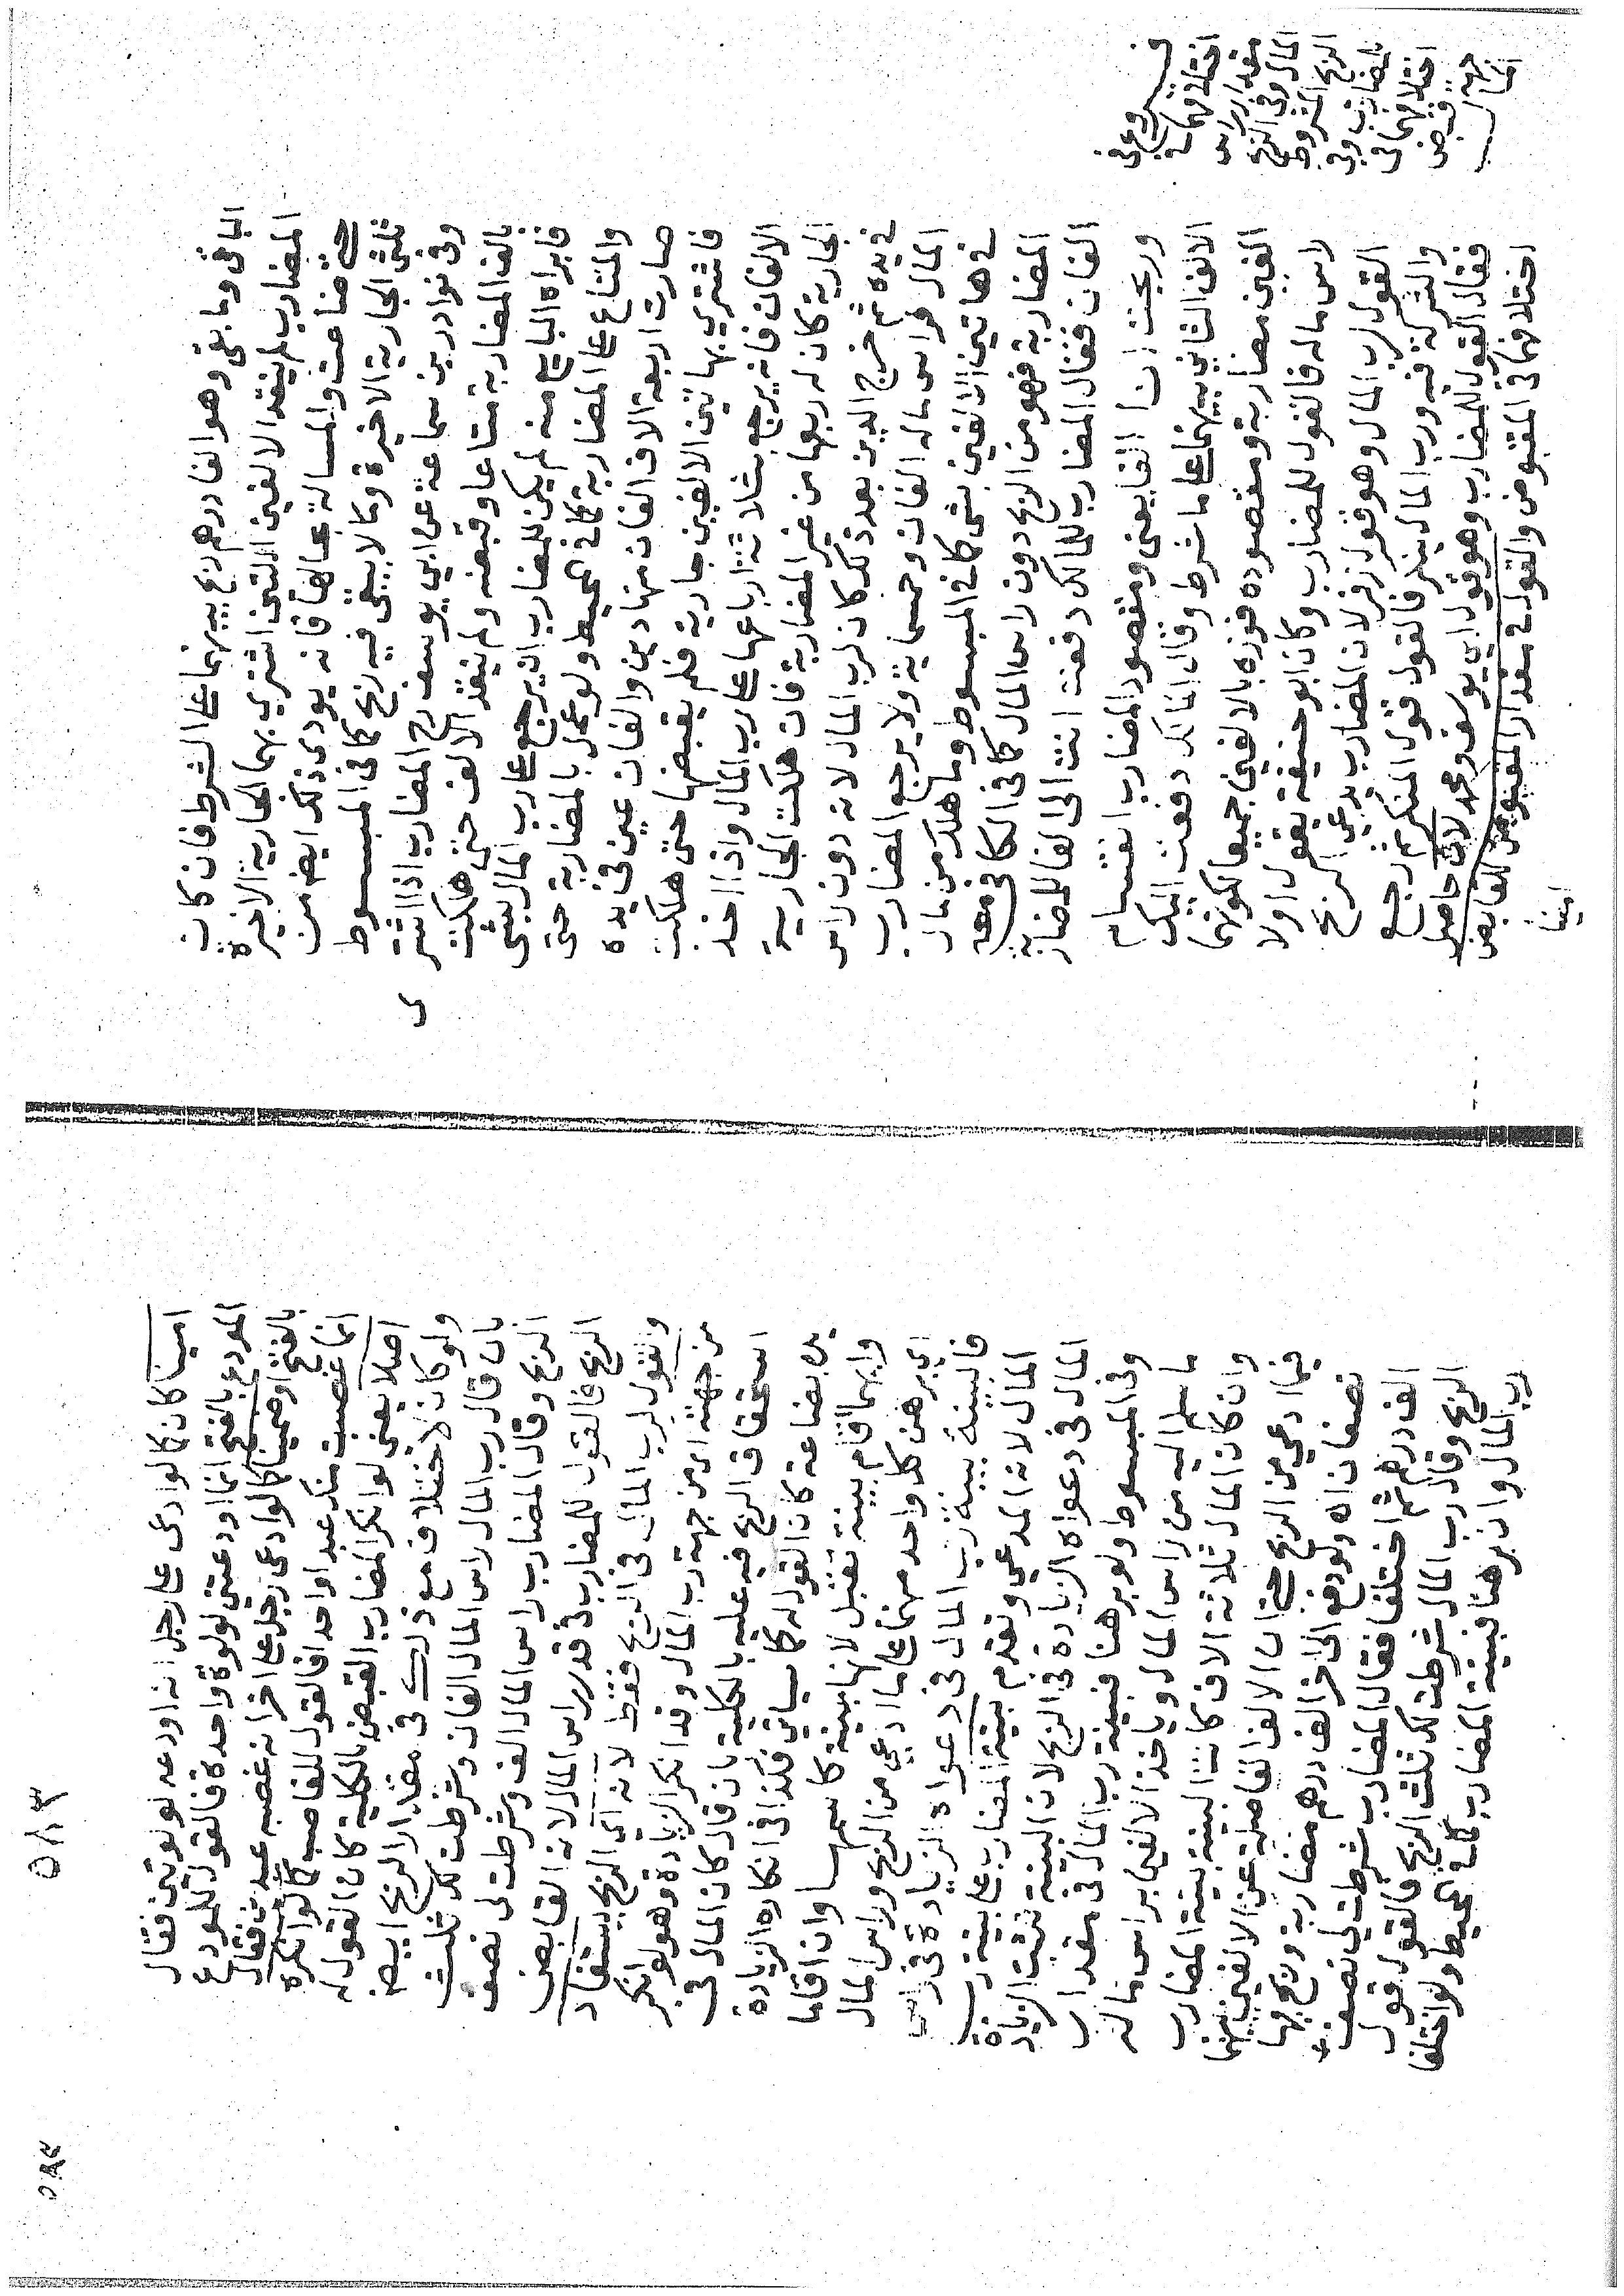 الباقي وما بقى وهو الفا درهم ربح بينهما على الشرط فان كان
المضارب لم ينقد الالفين التي اشتري بهما الجارية الاخيرة
حتى ضاعت والمسالة بحالها فانه يودى ذلك ايضا من
ثلثى الجارية الاخيرة وما لا يبقى فيه ربح كما في المبسوط
وفى نوادر بن سماعة عن ابي يوسف رح المضارب اذا اشترى
بالف المضاربة متاعا وقبضه ولم ينقد الالف حتى هلكت
فابراه البايع منه لم يكن للمضارب ان يرجع على رب المال بشى
والمتاع على المضاربة كما فى المحيط ولو عمل بالمضاربة حتى
صارت اربعة الاف الفان منها دين والفان عين فى يده
فاشتري بهاتين الالفين جارية فلم يقبضها حتى هلكت
الالفان فانه يرجع بثلاثة ارباعها على رب المال واذا اخذ
الجارية كان له ربعها من غير المضاربة فان هلكت الجارية
في يده ثم خرج الدين بعد ذلك كان لرب المال لانه دون راس
المال فراس ماله الفان وخمسماية ولا يرجع المضارب
في هاتين الالفين بشى كما فى المبسوط وما هلك من مال
المضاربة فهو من الربح دون راس المال كما فى الكافى معه
الفان فقال المضارب للمالك دفعت انت الى الفا للمضاربة
وربحت انا الفا يعنى ومقصود المضارب اقتسام
الالف الثاني بينهما على ما شرط وقال المالك دفعت اليك
الفين مضاربة ومقصوده فوزه بالالفين جميعا لكونهما
راس ماله فالقول للمضارب وكان ابو حنيفة يقول اولا
القول لرب المال وهو قول زفر لان المضارب يدعي الربح
والشركة فيه ورب المال ينكر فالقول قول المنكر ثم رجع
فقال القول للمضارب وهو قول ابي يوسف ومحمد لان حاصل
اختلافهما فى المقبوض والقول فى مقدار المقبوض للقابض
امينا
فروع فى
اختلافهما فى
مقدار راس
المال وفى الربح
الربح المشروط
للمضارب وفى
اختلافهما فى
جهة قبض
المال
امينا كان كما لو ادعى على رجل انه اودعه لولوتين فقال
المودع بالفتح انما اودعتنى لولوة واحدة فالقول للمودع
بالفتح او ضمينا كما لو ادعى رجل على اخر انه غصبه عبدين فقال
انما غصبت منك عبدا واحدا فالقول للغاصب كما لو انكره
اصلا يعنى لو انكر المضارب القبض بالكلية كان القول له
ولو كان الاختلاف مع ذلك فى مقدار الربح ايضا
بان قال رب المال راس المال الفان وشرطت لك ثلث
الربح وقال المضارب راس المال الف وشرطت لى نصف
الربح فالقول للمضارب فى قدر راس المال لانه القابض
والقول لرب المال فى الربح فقط لانه اي الربح يستفاد
من جهته اى من جهة رب المال وقد انكر الزيادة وهو لو انكر
استحقاق الربح فيه عليه بالكلية بان قال كان المال فى
يده بضاعة كان القول له كما سياتي فكذا فى انكاره الزيادة
وايهما اقام بينة تقبل لانها بينة كاسمها وان اقاما
اي برهن كل واحد منهما على ما ادعي من الربح وراس المال
فالبينة بينة رب المال فى دعواه الزيادة فى راس
المال لانه المدعي وتقدم بينة المضارب على بينة رب
المال فى دعواه الزيادة فى الربح لان البينة تثبت الزيادة
وفى المبسوط ولو برهنا فبينة رب المال فى مقدار
ما سلم اليه من راس المال وياخذ الالفين براس ماله
وان كان المال ثلاثة الاف كانت البينة بينة المضارب
فيما ادعي من الربح حتى ان الالف الفاضلة عن الالفين بينهما
نصفان اه ولو دفع الى اخر الف درهم مضاربة وربح بها
الف درهم ثم اختلفا فقال المضارب شرطت لي نصف
الربح وقال رب المال شرطت لك ثلث الربح فالقول قول
رب المال وان برهنا فبينة المضارب كما فى المحيط ولو اختلفا
٥٨٣